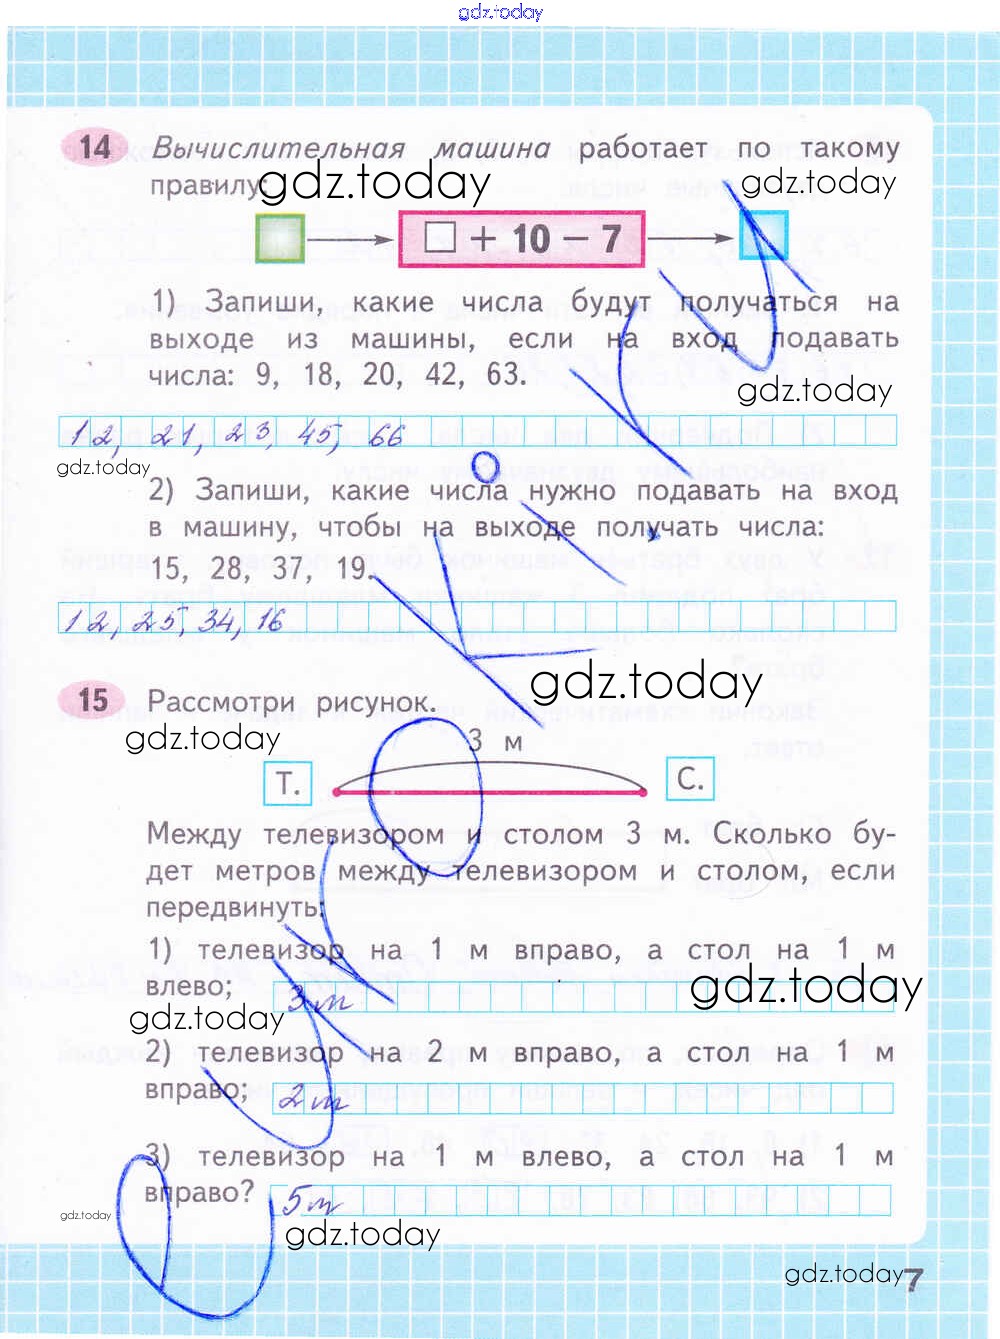 gdz.today
14 Вычислительная машина работает по такому
правилу:
gdz.today gdz.today
□ + 10 − 7
1) Запиши, какие числа будут получаться на
выходе из машины, если на вход подавать
числа: 9, 18, 20, 42, 63.
gdz.today
12, 21, 23, 45, 66
gdz.today
2) Запиши, какие числа нужно подавать на вход
в машину, чтобы на выходе получать числа:
15, 28, 37, 19.
12, 25, 34, 16
gdz.today
15 Рассмотри рисунок.
gdz.today
3 м
Т. С.
Между телевизором и столом 3 м. Сколько бу-
дет метров между телевизором и столом, если
передвинуть:
1) телевизор на 1 м вправо, а стол на 1 м
влево; 3 м
gdz.today
gdz.today
2) телевизор на 2 м вправо, а стол на 1 м
вправо; 2 м
3) телевизор на 1 м влево, а стол на 1 м
вправо? 5 м
gdz.today
gdz.today
gdz.today
7